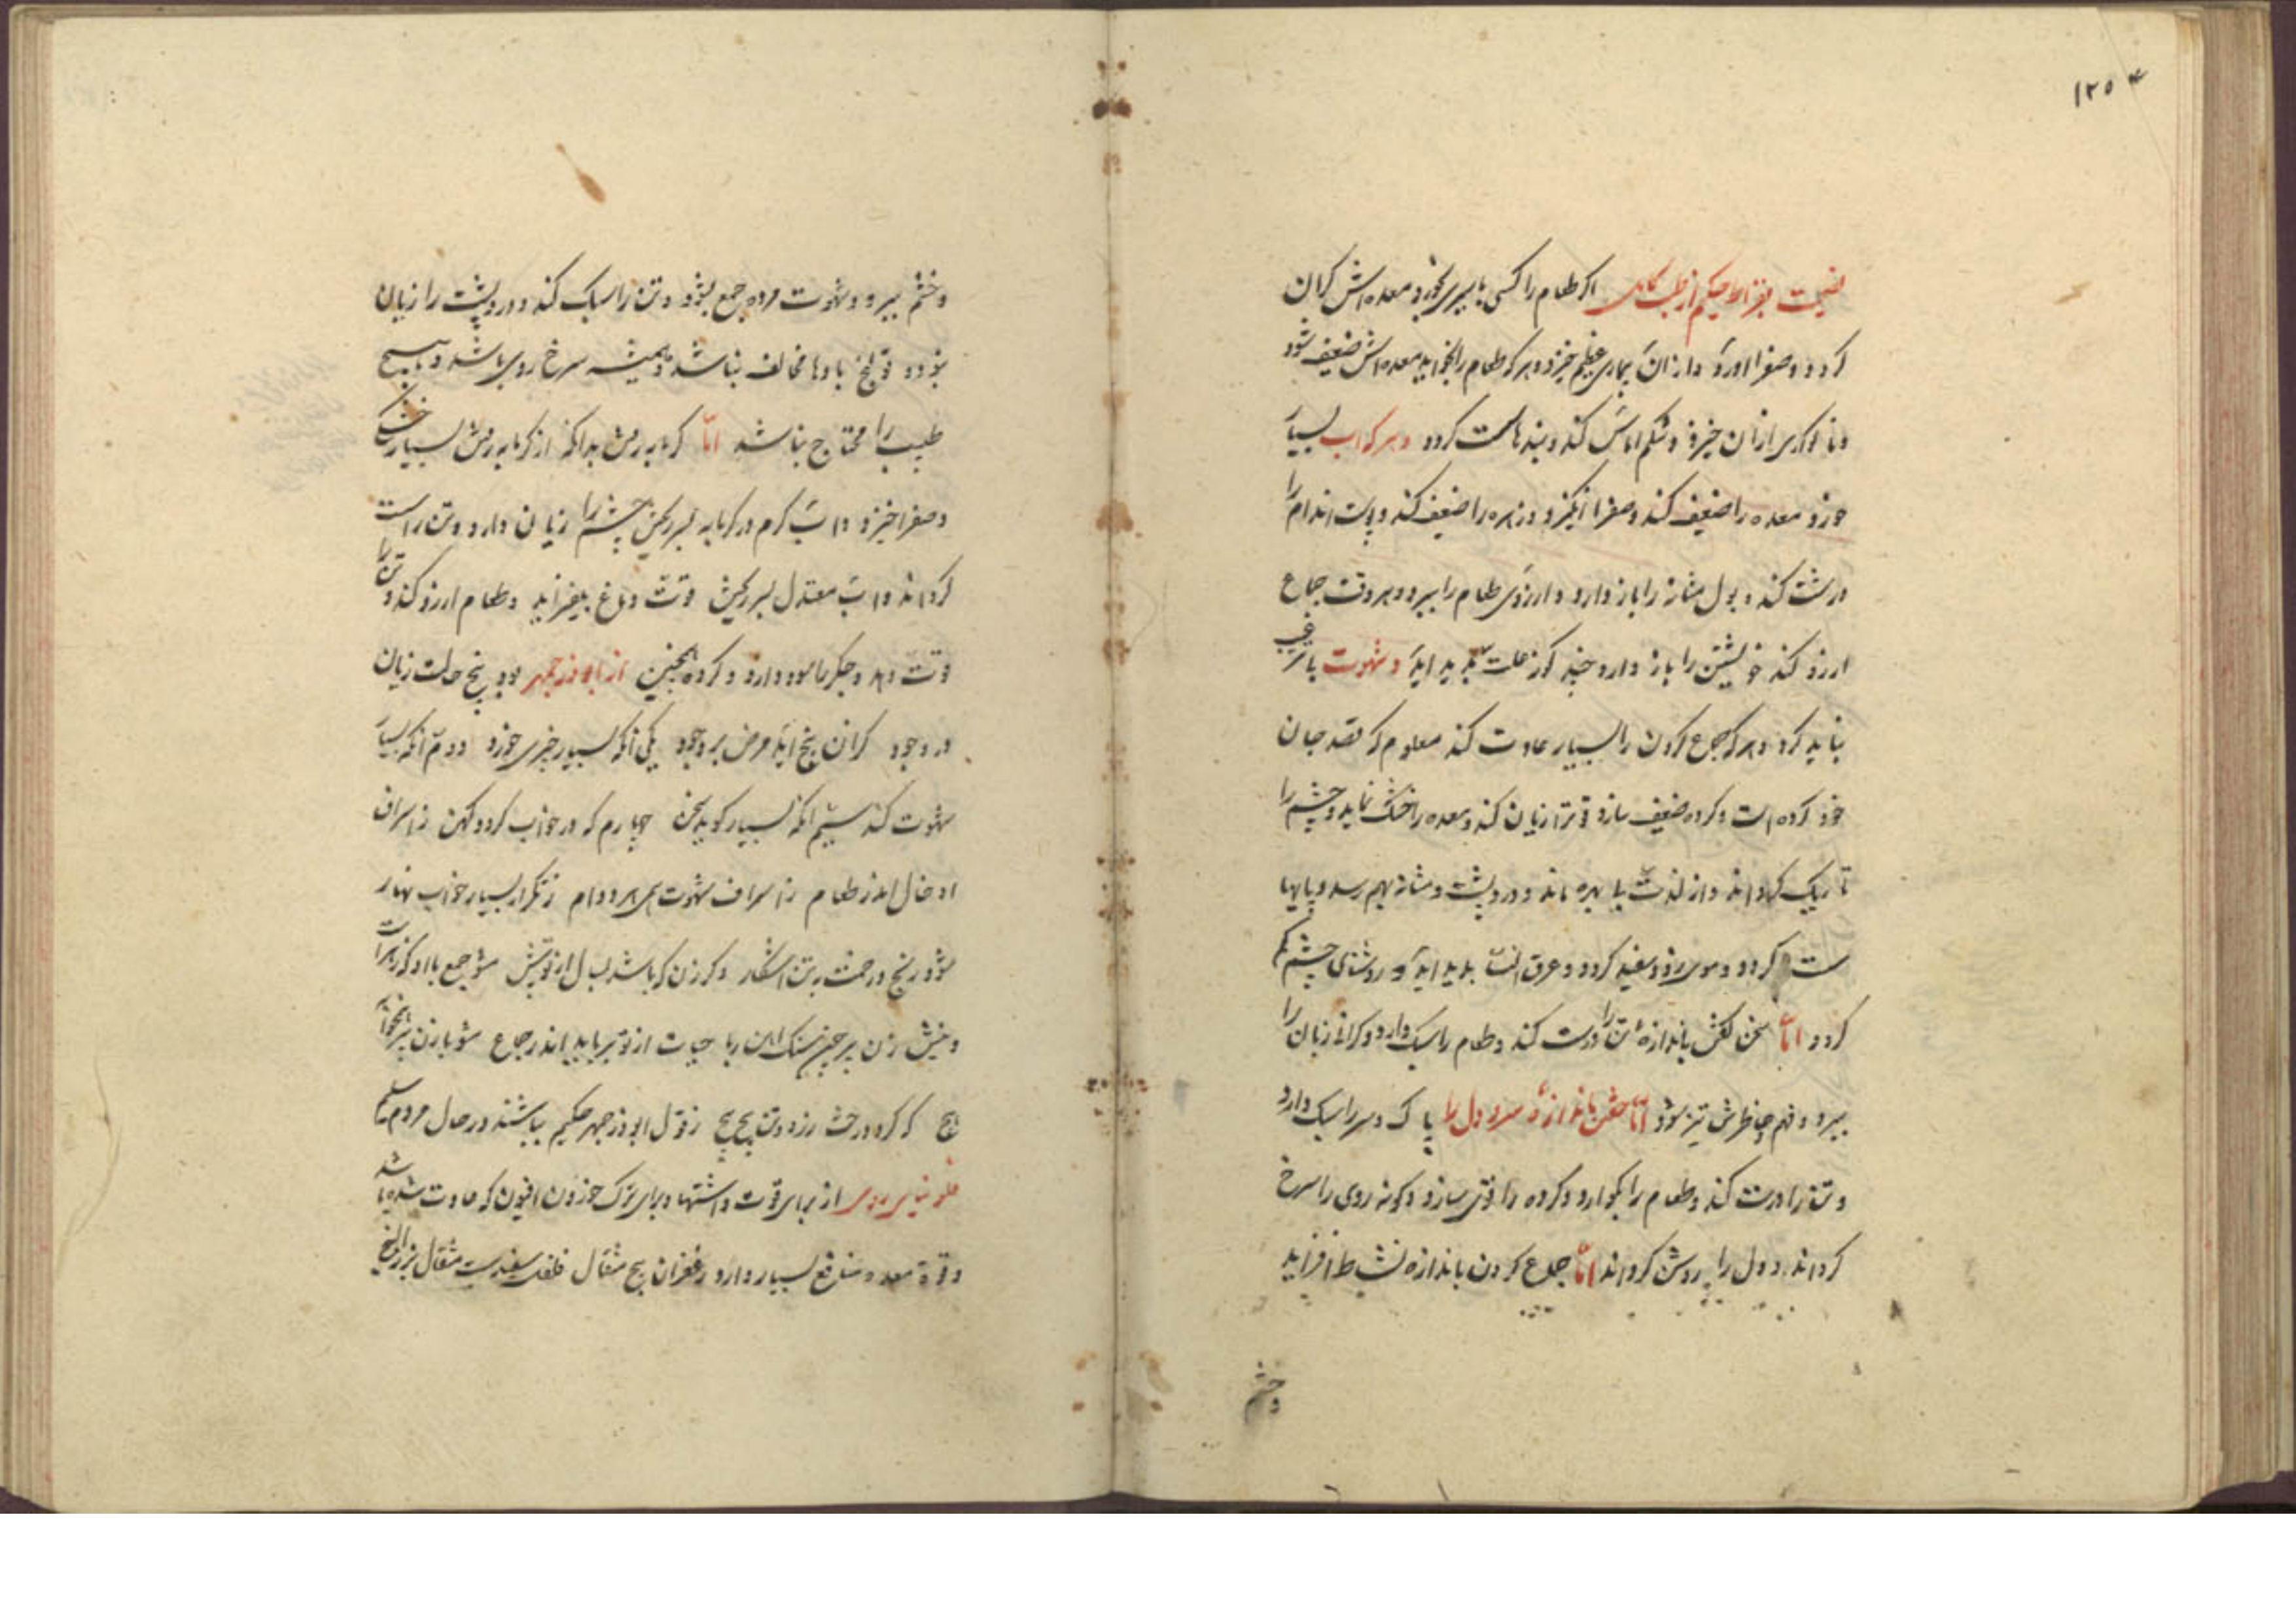 ۱۲۵
نصیحت بقراط حکیم از طب کامل اکر طعام را کسی با سیری بخورد معده اش کران
کردد و صفرا اورد و ازان بیماری عظیم خیزد و هر که طعام را بخواید معده اش ضعیف شود
و ناکواری ازان خیزد و شکم اماس کند و بندها سست کردد و هر که اب بسیار
خورد معده را ضعیف کند و صفرا انکیزد و زهره را ضعیف کند و پوست اندام را
درشت کند و بول مثانه را باز دارد و ارزوی طعام را ببرد و هر وقت جماع
ارزو کند خویشتن را باز دارد چند کونه علت پدید اید و شهوت باسراف
نباید کرد و هر که جماع کردن را بسیار عادت کند معلوم که قصد جان
خود کرده است و کرده ضعیف سازد و تن را زیان کند و معده را خشک نماید و چشم را
تاریک کرداند و از لذت بی بهره ماند و درد پشت و مثانه بهم رسد و پایها
سست کردد و موی زود سفید کردد و عرق النسا پدید اید و روشنای چشم کم
کردد اما سخن کفتن باندازه تن را درست کند و طعام را سبک دارد و کرانی زبان را
ببرد و فهم و خاطرش تیز شود اما خفتن باندازه سر و دل را پاک و سر را سبک دارد
و تن را درست کند و طعام را بکوارد و کرده را قوی سازد و کونه روی را سرخ
کرداند و دل را روشن کرداند اما جماع کردن باندازه نشاط افزاید
و خشم
و خشم ببرد و شهوت مرده جمع بشود و تن را سبک کند و درد پشت را زیان
بود و قولنج بادها مخالف نباشد و همیشه سرخ روی باشد و با هیچ
طبیب را محتاج نباشد اما کرمابه رفتن بدانکه از کرمابه رفتن بسیار خشکی
و صفرا خیزد و اب کرم در کرمابه بسر ریختن چشم را زیان دارد و تن را سست
کرداند و اب معتدل بسر ریختن قوت دماغ بیفزاید و طعام ارزو کند و تن را
قوت دهد و جکر را سود دارد و کرده همچنین از ابوذرجمهر بود پنج حالت زیان
در وجود کزان پنج اید مرض بر وجود یکی انکه بسیار چیزی خورد دوم انکه بسیار
شهوت کند سیم انکه بسیار کوید سخن چهارم که در خواب کردد کهن ز اسراف
ادخال اندر طعام ز اسراف شهوت دوام ز تکرار بسیار خواب نهار
شود رنج و رحمت به تن اشکار دکر زن که باشد بسال از تو بیش مشو جمع با او که زهراست
و نیش زن پیر چون سنک اهن ربا حیات از تو برباید اندر جماع مشو با زن پیر
کر کرد درخت رزد وتن پیچ پیچ ز قول ابوذرجمهر حکیم بباشند در حال مردم سلیم
فلونیای رومی از برای قوت و اشتها و برای ترک خوردن افیون که عادت شده باشد
و قوة معده و منافع بسیار دارد زعفران پنج مثقال فلفل سفید بیست مثقال بزرالبنج